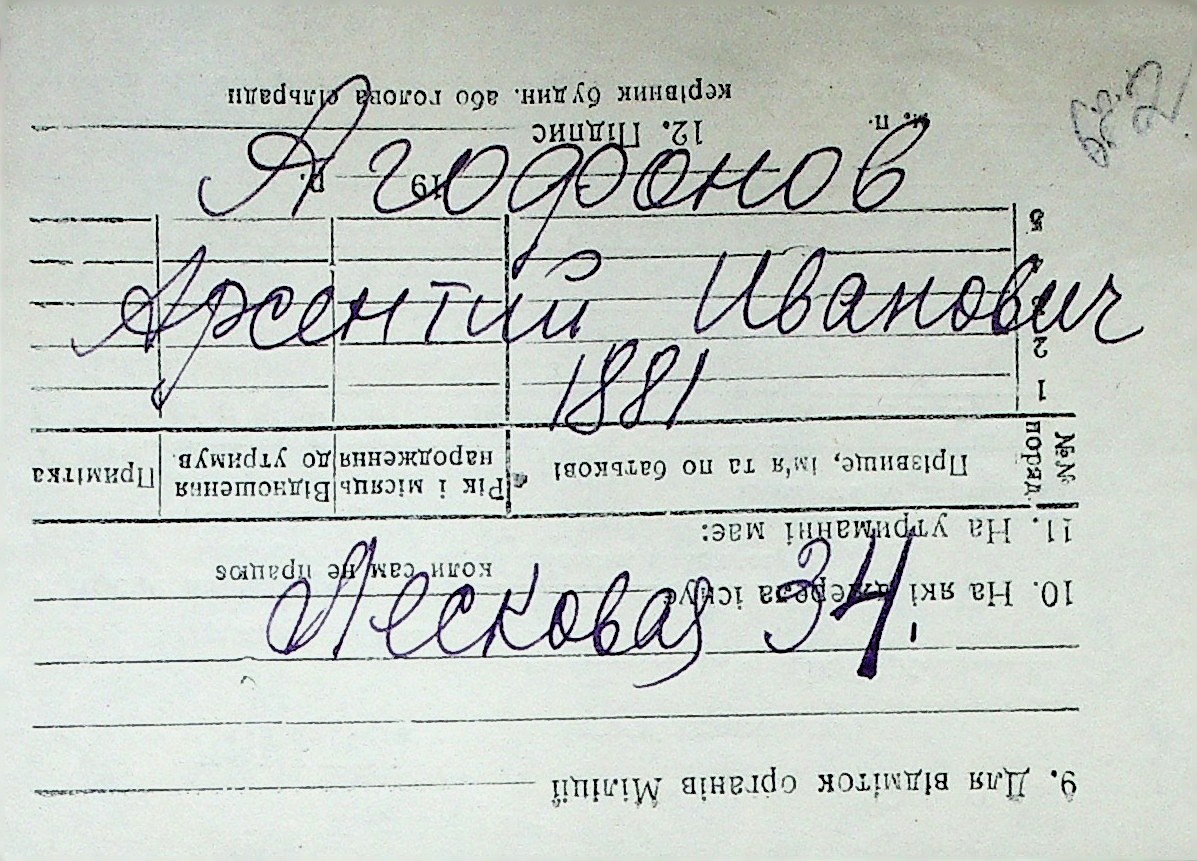 Агофонов
Арсентий Иванович
1881
Лесковая 34.
9. Для відміток органів Міліції
10. На які джереза існує
коли сам не працює
11. На утриманні має:
№№ поряд. Прізвище, ім'я та по батькові Рік і місяць народження Відношення до утримув. Примітка
1
2
5
19 р.
м. п. 12. Підпис
керівник будин. або голова сільради